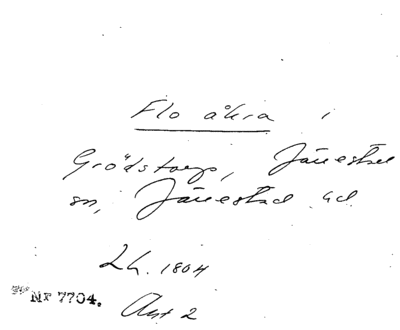 Flo åkra i
Grödstorp, Järrestad
sn, Järrestad hd
Lh. 1804
Nr 7704.
Akt 2